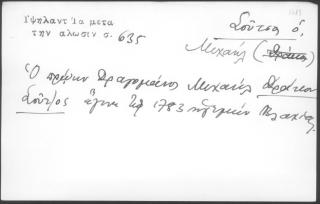 Ὑψηλάντ Τα μετα
την αλωσιν σ. 635
Σοῦτσα ὁ,
Μιχαήλ (Δράκο)
Ὁ πρώην Δραγομάνος Μιχαήλ Δράκος
Σοῦτζος ἔγινε τῷ 1783 ἡγεμὼν Βλαχίας